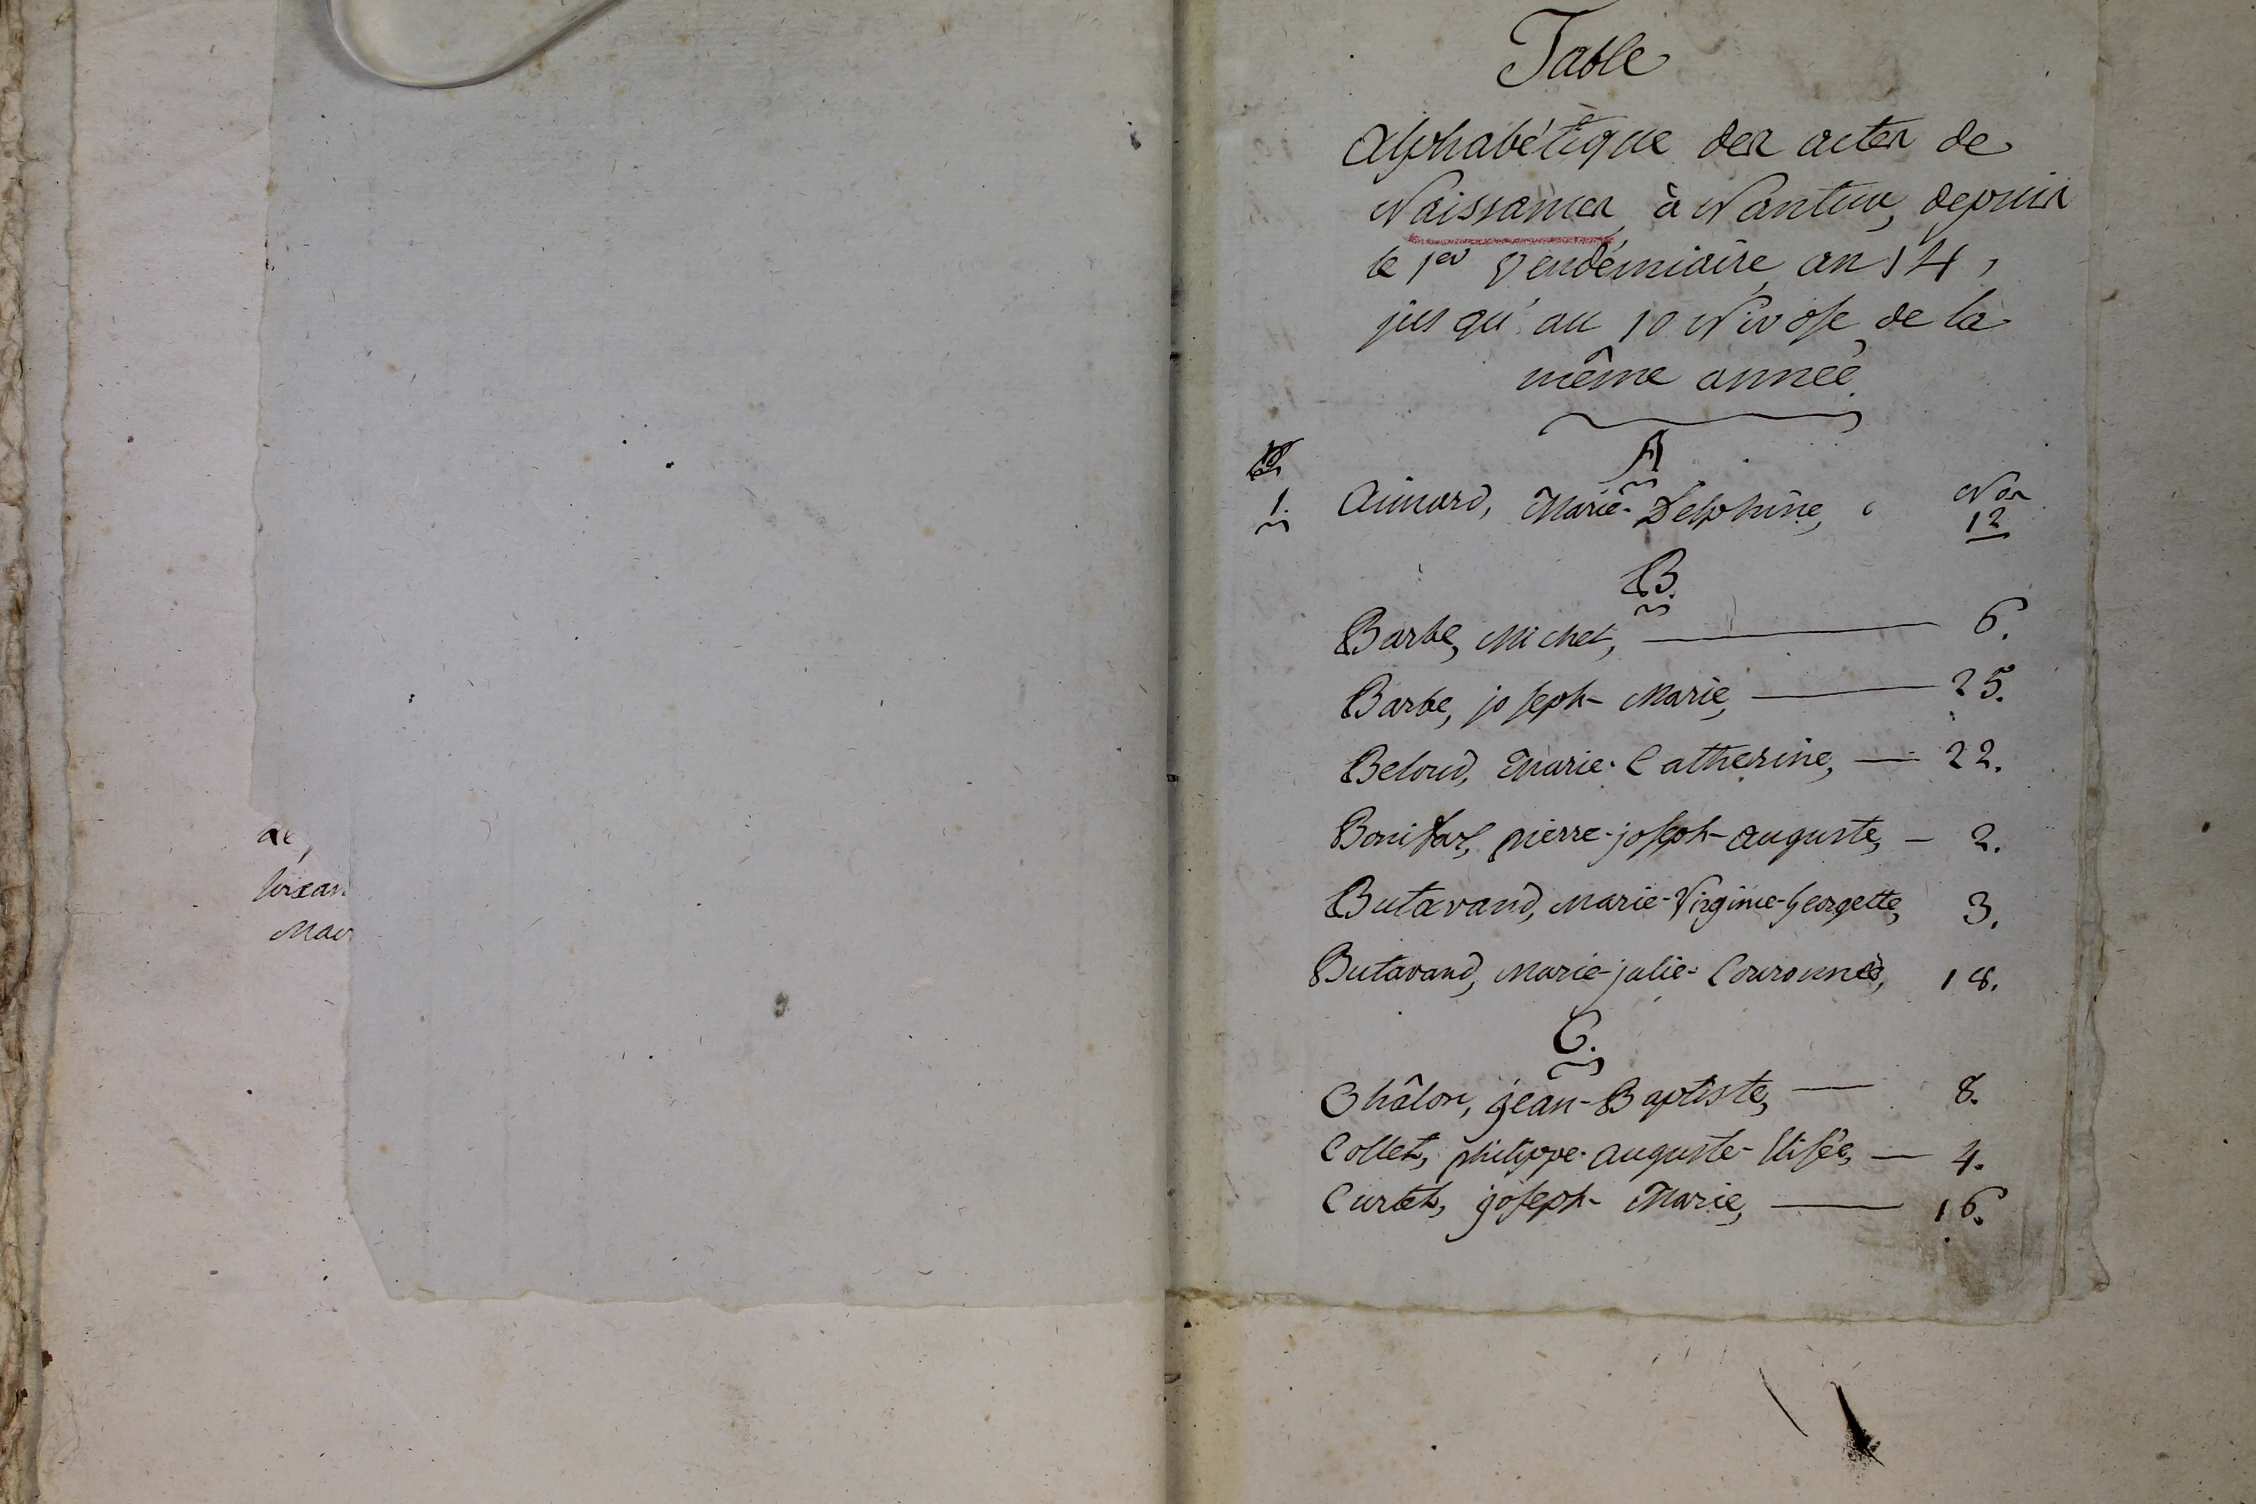 Table
Alphabétique des actes de
Naissances à Nantua, depuis
le 1er Vendémiaire an 14,
jusqu'au 10 Nivose de la
même année.
A
Nos
1. Aimard, Marie-Delphine, 12
B.
Barbe, Michel, 6.
Barbe, joseph-Marie, 25.
Beloud, Marie-Catherine, 22.
Bonifax, pierre-joseph-auguste, 2.
Butavand, Marie-Virginie-Georgette, 3.
Butavand, Marie-julie-Couronnée, 18.
C.
Châlon, jean-Baptiste, 8.
Collet, philippe-auguste-Elisée, 4.
Curtet, joseph-Marie, 16.